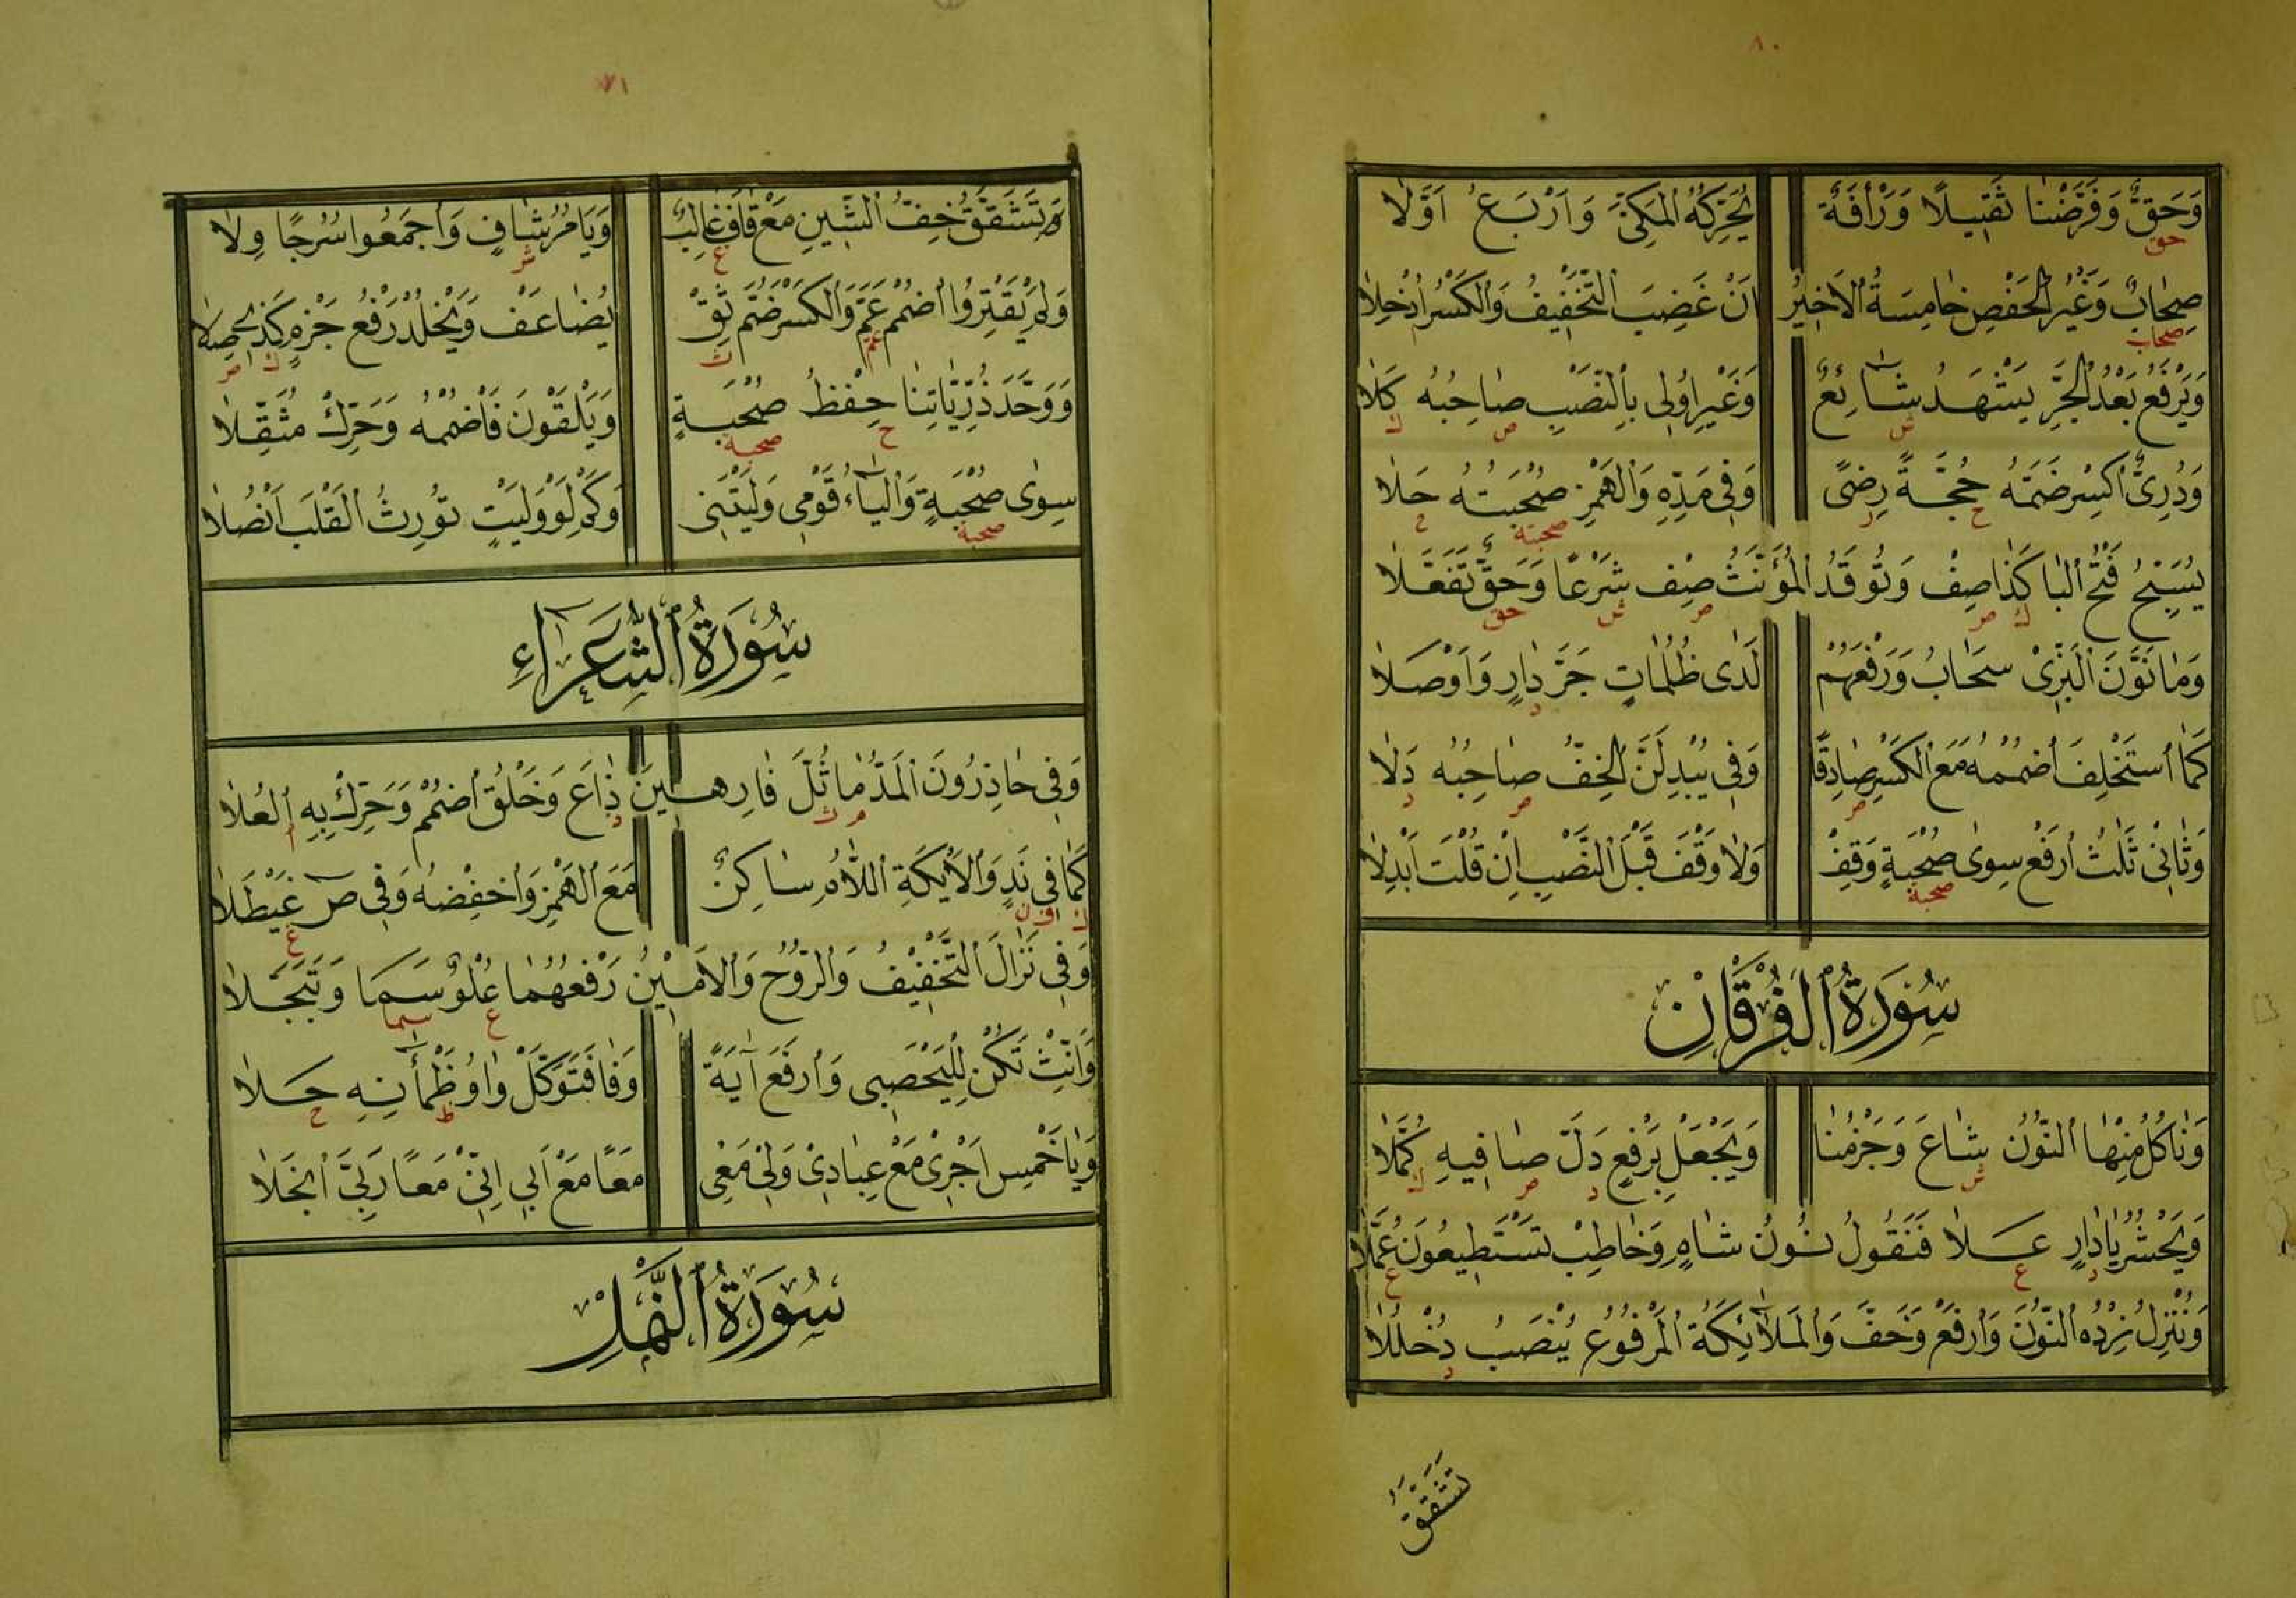 ٨٠
وَحَقٌّ وَفَرَّضْنَا ثَقِيلًا وَرَأْفَةٌ يُحَرِّكُهُ المَكِّيُّ وَاَرْبَعُ اَوَّلَا
حق
صِحَابٌ وَغَيْرُ الحَفْصِ خَامِسَةُ الاَخِيْرُ اَنْ غَضِبَ التَّخْفِيفُ وَالكَسْرُ اُدْخِلَا
صحاب
وَيَرْفَعُ بَعْدُ الجَرِّ يَشْهَدُ شَائِعٌ وَغَيْرِ اُولِى بِالنَّصْبِ صَاحِبُهُ كَلَا
ش ص ك
وَدُرِىٌّ اكْسِرْ ضَمَّهُ حُجَّةً رِضًى وَفِى مَدِّهِ وَالهَمْزِ صُحْبَتُهُ حَلَا
ح ر صحبته ح
يُسَبِّحُ فَتْحُ البَا كَذَا صِفْ وَتُوقَدُ المُؤَنَّثُ صِفْ شَرْعًا وَحَقٌّ تَفَعَّلَا
ك ص ص ش حق
وَمَا نَوَّنَ البَزِّىْ سَحَابُ وَرَفْعُهُمْ لَدَى ظُلُمَاتٍ جَرَّ دَارٍ وَاَوْصَلَا
د
كَمَا اسْتُخْلِفَ اضْمُمْهُ مَعَ الكَسْرِ صَادِقًا وَفِى يُبْدِلَنَّ الخِفُّ صَاحِبُهُ دَلَا
ص ص د
وَثَانِىْ ثَلٰثُ ارْفَعْ سِوٰى صُحْبَةٍ وَقِفْ وَلَا وَقْفَ قَبْلَ النَّصْبِ اِنْ قُلْتَ اُبْدِلَا
صحبة
سُوْرَةُ الفُرْقَانِ
وَنَاكُلُ مِنْهَا النُّوْنُ شَاعَ وَجَزْمُنَا وَيَجْعَلْ بِرَفْعٍ دَلَّ صَافِيهِ كُمَّلَا
ش د ص ك
وَيَحْشُرُ يَادَارٍ عَلَا فَنَقُولُ نُونُ شَامٍ وَخَاطِبْ تَسْتَطِيعُونَ عُمَّلَا
د ع ع
وَنُنْزِلُ زِدْهُ النُّوْنَ وَارْفَعْ وَخَفَّ وَالمَلَآئِكَةُ المَرْفُوْعُ يُنْصَبُ دُخْلُلَا
د
تَشَقَّقُ
٧١
تَشَقَّقُ خِفُّ الشِّينِ مَعْ قَافَ غَالِبٌ وَيَامُرُ شَافٍ وَاجْمَعُوا سُرُجًا وِلَا
غ ش
وَلَمْ يَقْتِرُوا اضْمُمْ عَمَّ وَالكَسْرَ ضُمَّ ثِقْ يُضَاعَفْ وَيَخْلُدْ رَفْعُ جَزْمٍ كَذِى صِلَا
عم ث ك ص
وَوَحَّدَ ذُرِّيَّاتِنَا حِفْظُ صُحْبَةٍ وَيَلْقَوْنَ فَاضْمُمْهُ وَحَرِّكْ مُثَقِّلَا
ح صحبه
سِوٰى صُحْبَةٍ وَاليَآءُ قَوْمِى وَلَيْتَنِى وَكَمْ لَوْ وَلَيْتٍ تُوْرِثُ القَلْبَ اَنْصُلَا
صحبة
سُوْرَةُ الشُّعَرَآءِ
وَفِى حَاذِرُونَ المَدُّ مَا ثُلَّ فَارِهِينَ ذَاعَ وَخَلْقُ اضْمُمْ وَحَرِّكْ بِهِ العُلَا
م ث ذ ا
كَمَا فِى نَدٍ وَالاَيْكَةِ اللَّامُ سَاكِنٌ مَعَ الهَمْزِ وَاخْفِضْهُ وَفِى صٓ غَيْطَلَا
ك ف ن غ
وَفِى نَزَّلَ التَّخْفِيْفُ وَالرُّوْحُ وَالاَمِيْنُ رَفْعُهُمَا عُلْوٌ سَمَا وَتَبَجَّلَا
ع سما
وَاَنِّثْ تَكُنْ لِلْيَحْصَبِى وَارْفَعْ آيَةً وَفَا فَتَوَكَّلْ وَاوُ ظَمْآنِهِ حَلَا
ظ ح
وَيَا خَمْسِ اَجْرِىْ مَعْ عِبَادِىْ وَلِىْ مَعِى مَعًا مَعْ اَبِى اِنِّىْ مَعًا رَبِّىَ انْجَلَا
سُوْرَةُ النَّمْلِ